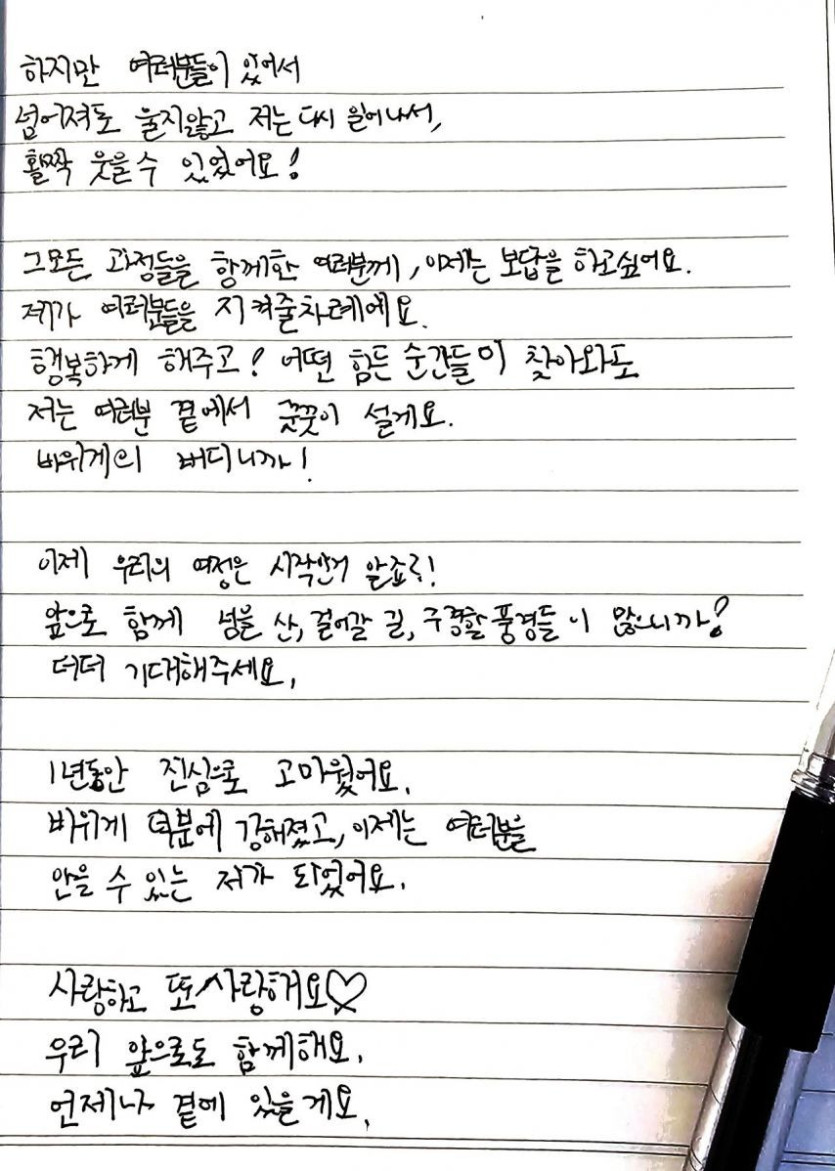 하지만 여러분들이 있어서
넘어져도 울지않고 저는 다시 일어나서,
활짝 웃을 수 있었어요!
그모든 과정들을 함께한 여러분께, 이제는 보답을 하고싶어요.
제가 여러분들을 지켜줄차례에요.
행복하게 해주고! 어떤 힘든 순간들이 찾아와도
저는 여러분 곁에서 굳굳이 설게요.
바위게의 버디니까!
이제 우리의 여정은 시작인거 알죠?!
앞으로 함께 넘을 산, 걸어갈 길, 구경할 풍경들이 많으니까!
더더 기대해주세요.
1년동안 진심으로 고마웠어요.
바위게 덕분에 강해졌고, 이제는 여러분을
안을 수 있는 저가 되었어요.
사랑하고 또 사랑해요♡
우리 앞으로도 함께해요.
언제나 곁에 있을게요.